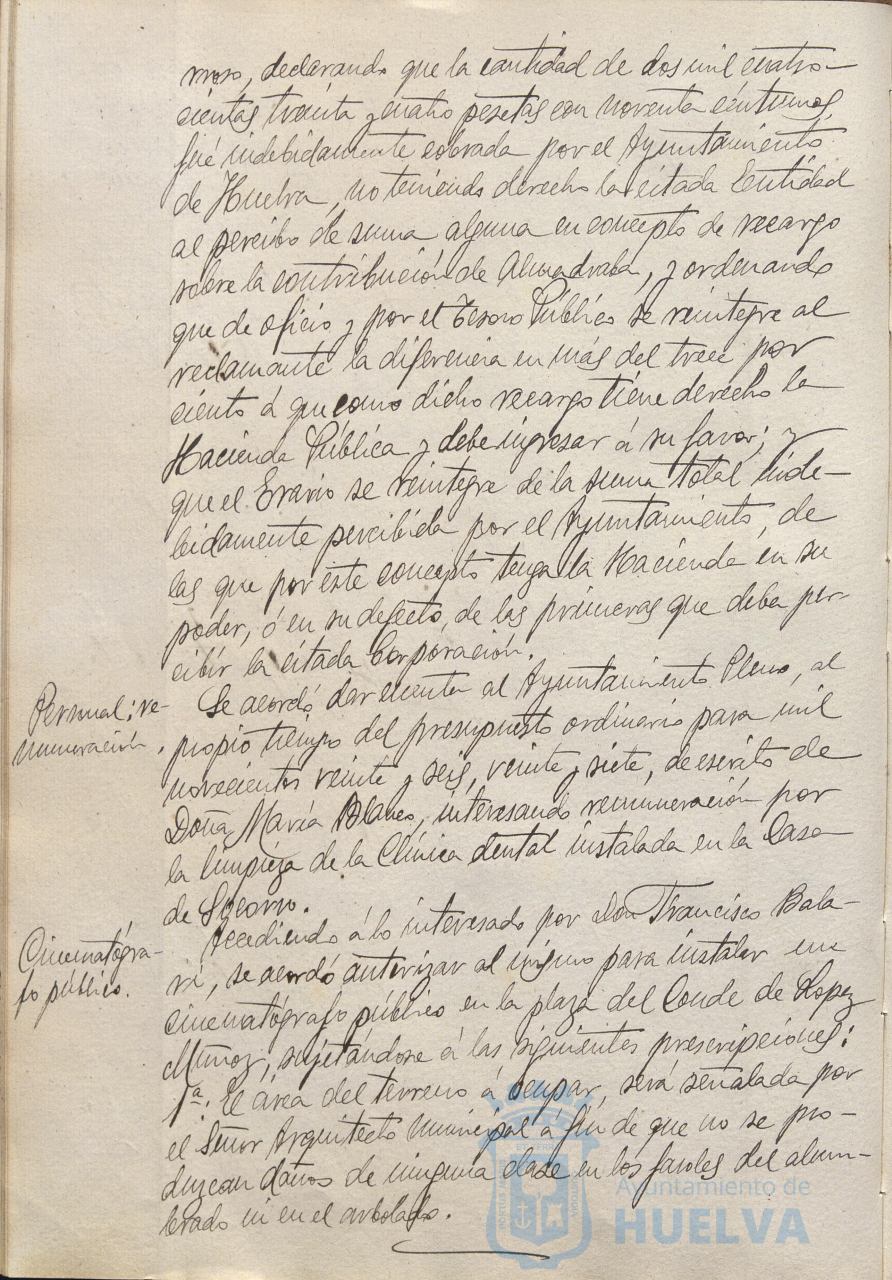 moso, declarando que la cantidad de dos mil cuatro-
cientas treinta y cuatro pesetas con noventa céntimos
fué indebidamente cobrada por el Ayuntamiento
de Huelva, no teniendo derecho la citada Entidad
al percibo de suma alguna en concepto de recargo
sobre la contribución de Almadraba, y ordenando
que de oficio y por el Tesoro Público se reintegre al
reclamante la diferencia en más del trece por
ciento á que como dicho recargo tiene derecho la
Hacienda Pública y debe ingresar á su favor; y
que el Erario se reintegre de la suma total inde-
bidamente percibida por el Ayuntamiento, de
las que por este concepto tenga la Hacienda en su
poder, ó en su defecto, de las primeras que deba per-
cibir la citada Corporación.
Personal; re-
muneración.
Se acordó dar cuenta al Ayuntamiento Pleno, al
propio tiempo del presupuesto ordinario para mil
novecientos veinte y seis, veinte y siete, de escrito de
Doña María Blanco, interesando remuneración por
la limpieza de la Clínica dental instalada en la Casa
de Socorro.
Cinematógra-
fo público.
Accediendo á lo interesado por Don Francisco Bala-
ri, se acordó autorizar al mismo para instalar un
cinematógrafo público en la plaza del Conde de Lopez
Muñoz, sujetándose á las siguientes prescripciones:
1ª. El área del terreno á ocupar, será señalada por
el Señor Arquitecto Municipal á fin de que no se pro-
duzcan daños de ninguna clase en los faroles del alum-
brado ni en el arbolado.
Ayuntamiento de
HUELVA